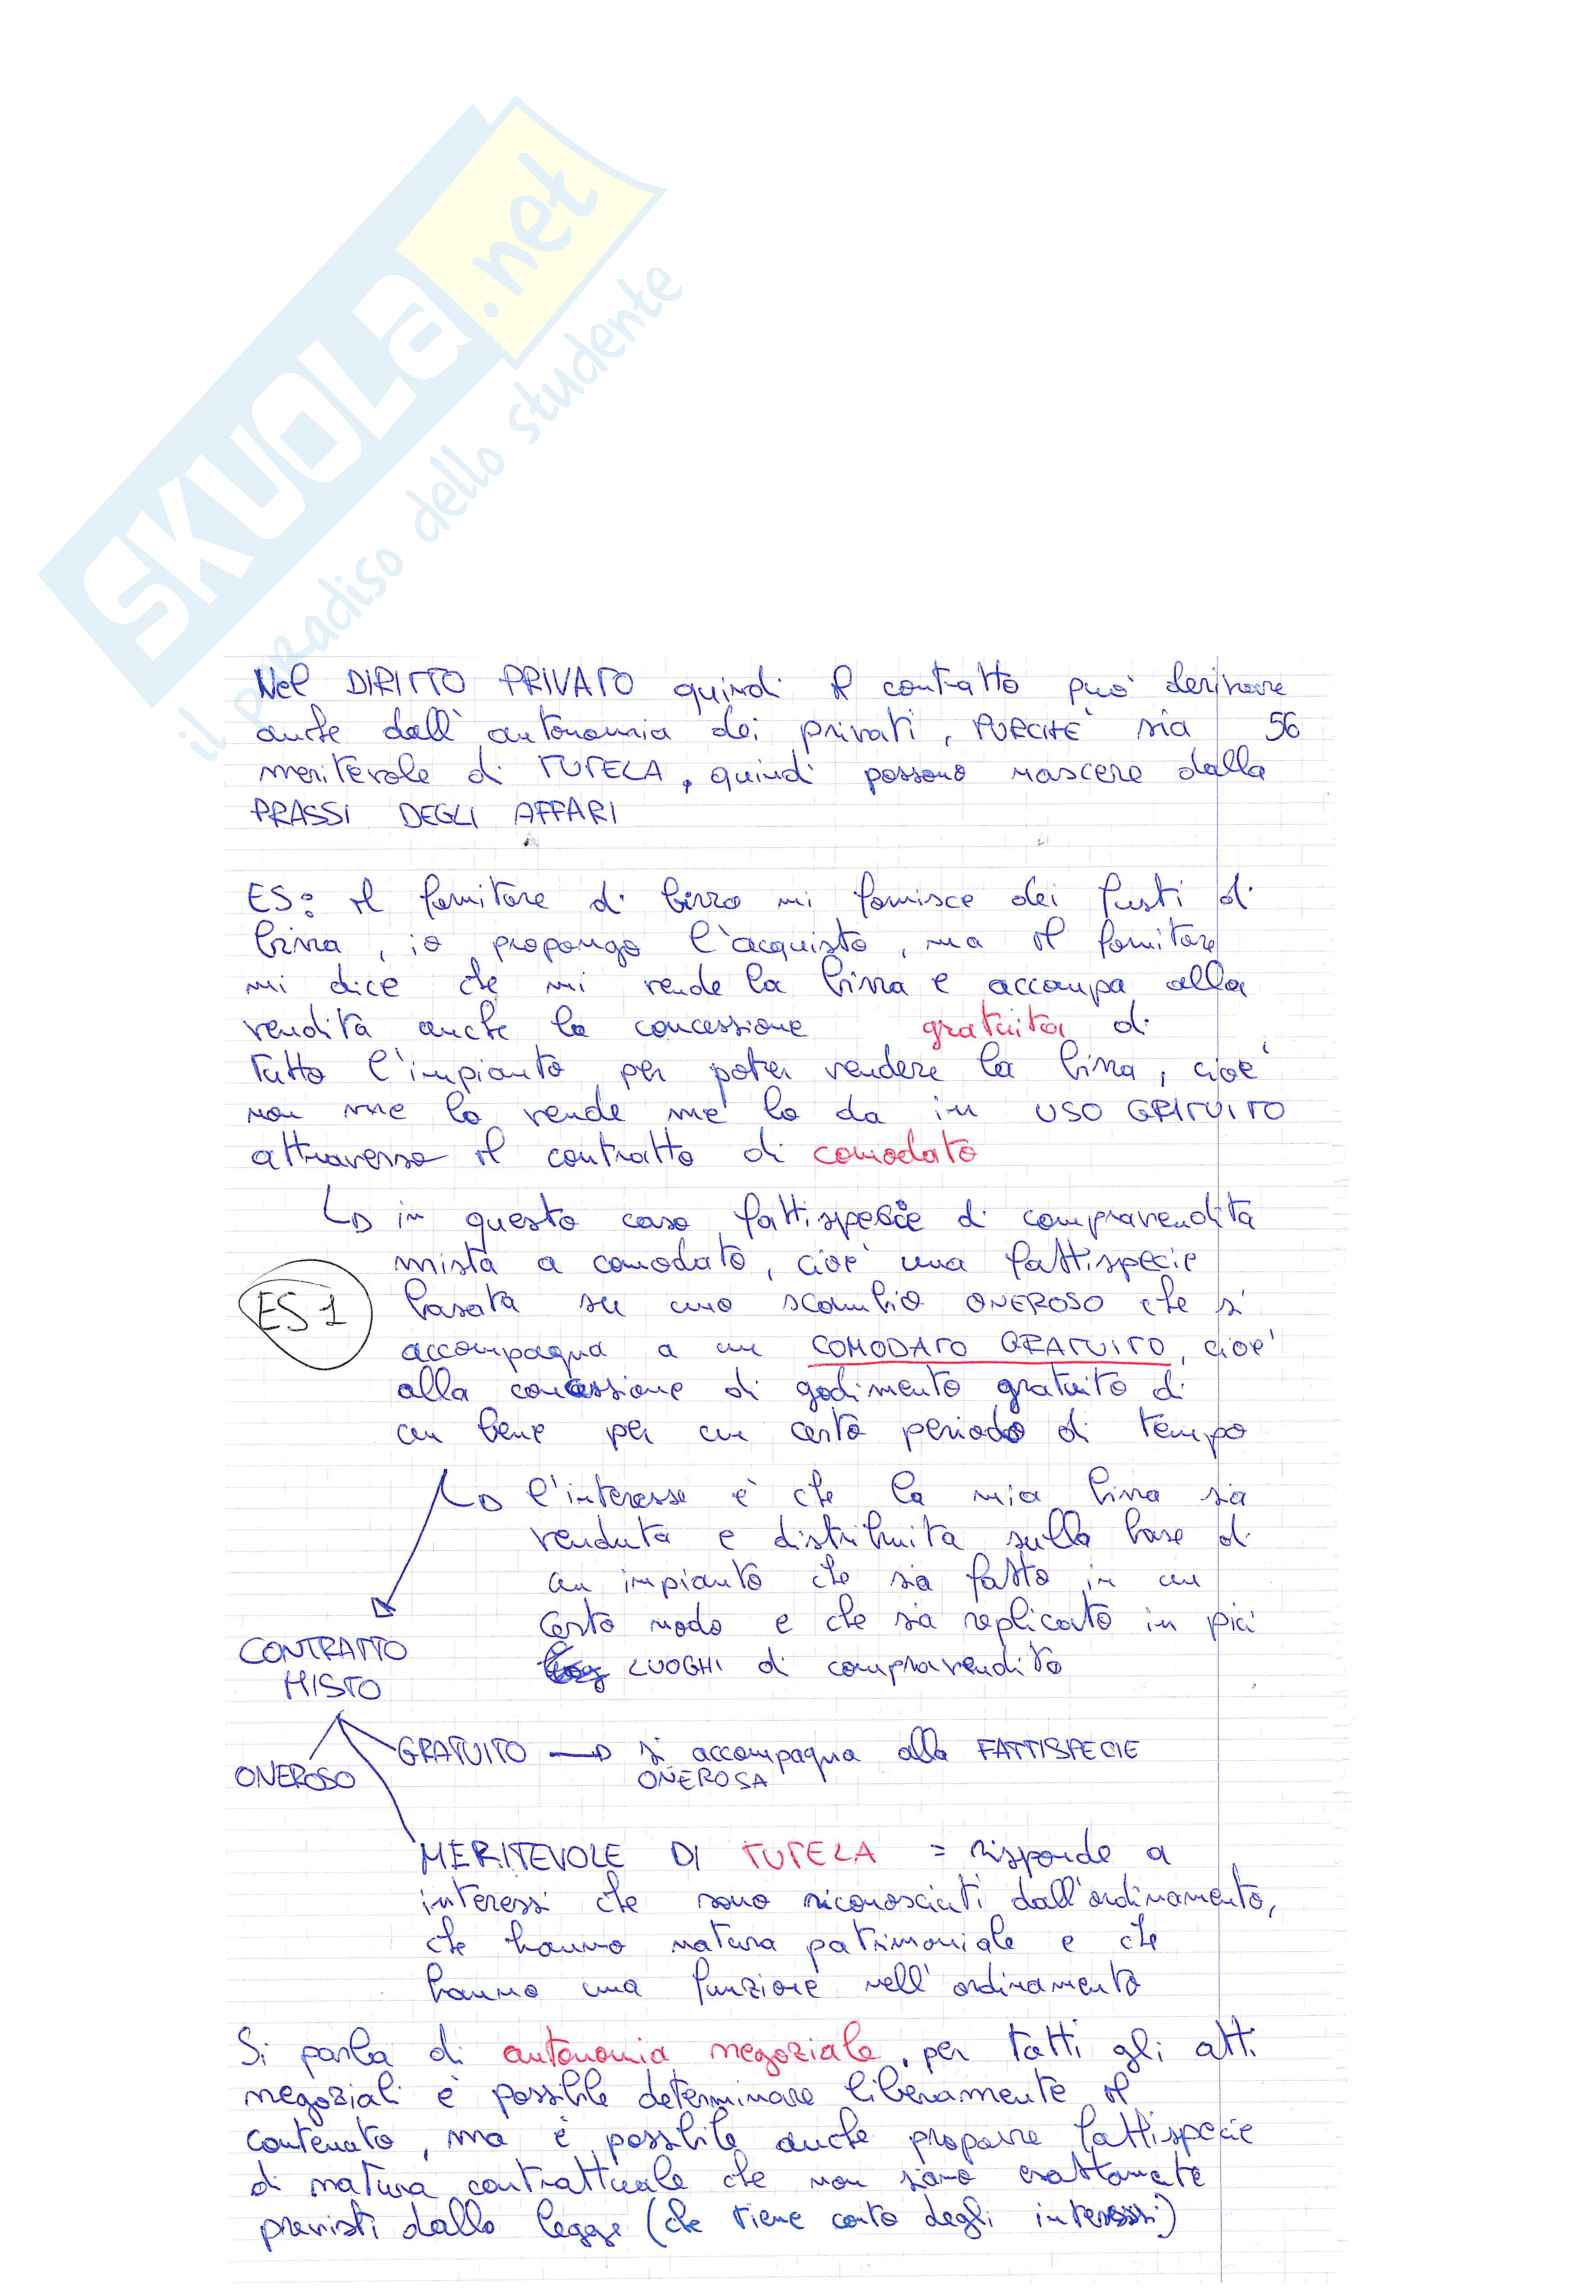 SKUOLA.net
il paradiso dello studente
Nel DIRITTO PRIVATO quindi il contratto può derivare
anche dall'autonomia dei privati, PURCHÈ sia 56
meritevole di TUTELA, quindi possono nascere dalla
PRASSI DEGLI AFFARI
ES: il fornitore di birra mi fornisce dei fusti di
birra, io propongo l'acquisto, ma il fornitore
mi dice che mi vende la birra e accompa alla
vendita anche la concessione gratuita di
tutto l'impianto per poter vendere la birra, cioè
non me lo vende me lo da in USO GRATUITO
attraverso il contratto di comodato
in questo caso fattispecie di compravendita
mista a comodato, cioè una fattispecie
ES 1
basata su uno scambio ONEROSO che si
accompagna a un COMODATO GRATUITO, cioè
alla concessione di godimento gratuito di
un bene per un certo periodo di tempo
l'interesse è che la mia birra sia
venduta e distribuita sulla base di
un impianto che sia fatto in un
certo modo e che sia replicato in più
LUOGHI di compravendita
CONTRATTO
MISTO
GRATUITO si accompagna alla FATTISPECIE
ONEROSO ONEROSA
MERITEVOLE DI TUTELA = risponde a
interessi che sono riconosciuti dall'ordinamento,
che hanno natura patrimoniale e che
hanno una funzione nell'ordinamento
Si parla di autonomia negoziale, per tutti gli atti
negoziali è possibile determinare liberamente il
contenuto, ma è possibile anche proporre fattispecie
di natura contrattuale che non siano esattamente
previsti dalla legge (che tiene conto degli interessi)